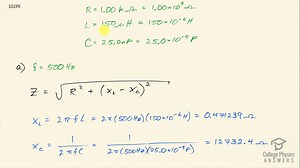 102PE
R = 1.00 kΩ = 1.00×10³ Ω
L = 150 μH = 150×10⁻⁶ H
C = 25.0 nF = 25.0×10⁻⁹ F
a) f = 500 Hz
Z = √(R² + (X_L - X_C)²)
X_L = 2πfL = 2π(500Hz)(150×10⁻⁶H) = 0.471239 Ω
X_C = 1/(2πfC) = 1/(2π(500Hz)(25.0×10⁻⁹F)) = 12732.4 Ω
College Physics
ANSWERS